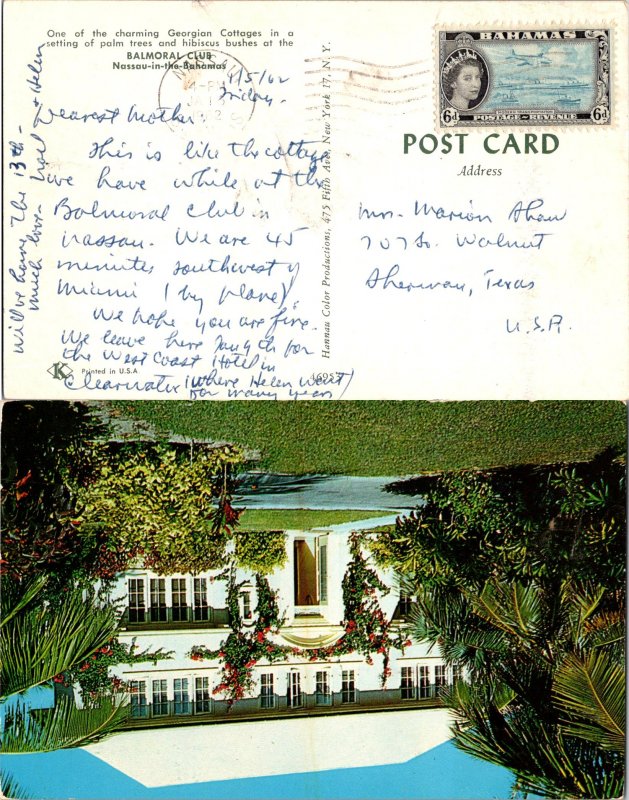 One of the charming Georgian Cottages in a
setting of palm trees and hibiscus bushes at the
BALMORAL CLUB
Nassau-in-the-Bahamas
1/5/62
Friday.
Dearest Mother:
This is like the cottage
we have while at the
Balmoral Club in
Nassau. We are 45
minutes southwest of
Miami (by plane).
We hope you are fine.
We leave here Jan 9th for
the West Coast Hotel in
Clearwater (where Helen went
for many years)
Will be home the 13th -
much love - & Helen
Printed in U.S.A
K
Hannau Color Productions, 475 Fifth Ave, New York 17, N. Y.
BAHAMAS
6d
6d
POSTAGE & REVENUE
POST CARD
Address
Mrs. Marion Shaw
707 So. Walnut
Sherman, Texas
U.S.A.